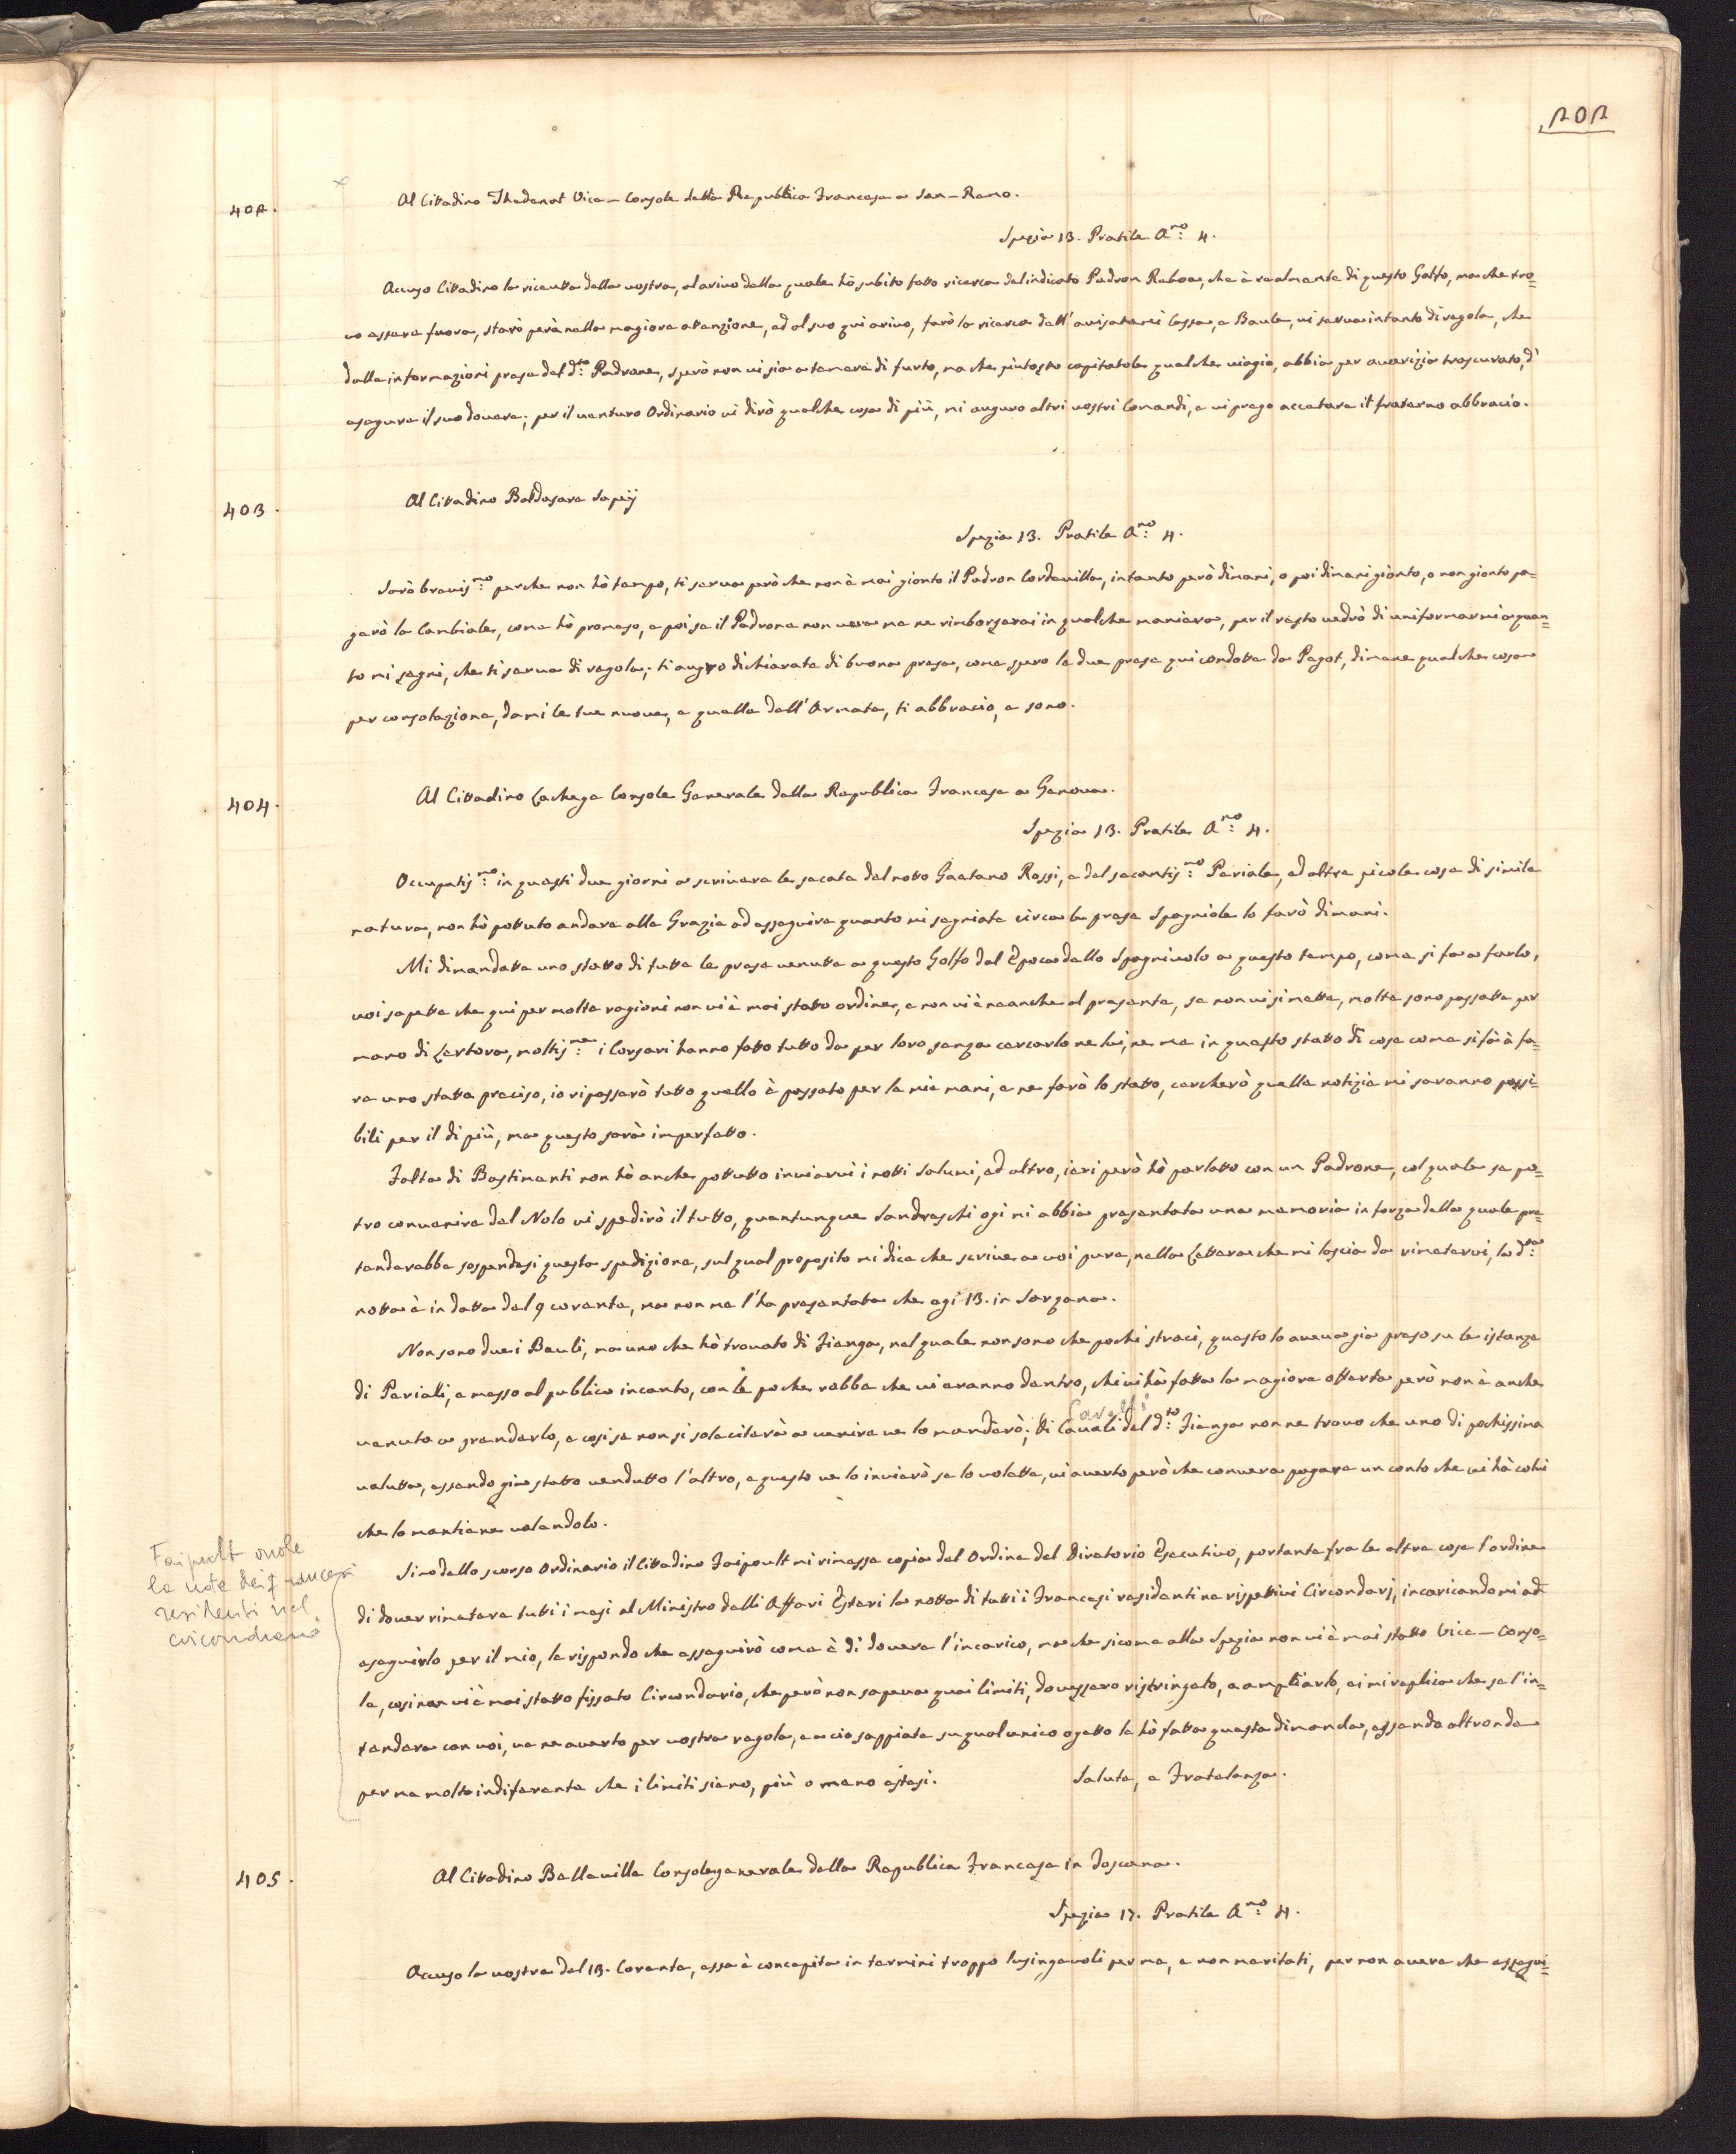 202
402.
Al Cittadino Thedenat Vice-Consele della Republica Francese a San-Remo.
Spezia 13. Pratile A.no 4.
Accuso Cittadino la ricevuta della vostra, al arivo della quale hò subito fatto ricerca del indicato Padron Raboa, che è realmente di questo Golfo, ma che tro-
vo essere fuora, starò però nella magiore atenzione, ed al suo qui arivo, farò la ricerca dell'avisatemi Cassa, e Baule, vi serva intanto di regola, che
dalle informazioni prese del d.to Padrone, sperò non vi sia a temere di furto, ma che piutosto capitatole qualche viagio, abbia per avarizia trascurato, d'
eseguire il suo dovere; per il venturo Ordinario vi dirò qualche cosa di più, mi auguro altri vostri Comandi, e vi prego accetare il fraterno abbracio.
403.
Al Cittadino Baldasare Sapej
Spezia 13. Pratile A.no 4.
Sarò brevis.mo perche non hò tempo, ti serva però che non è mai gionto il Padron Cordeviola, intanto però dimani, o poi dimani gionto, o non gionto pa-
garò la Cambiale, come hò promeso, e poi se il Padrone non vera me ne rimborserai in qualche maniera, per il resto vedrò di uniformarmi a quan-
to mi segni, che ti serva di regola; ti auguro dichiarate di buona presa, come spero le due prese qui condotte da Pagot, dimane qualche cosa
per consolazione, dami le tue nuove, e quelle dell'Armata, ti abbracio, e sono.
404.
Al Cittadino Lachege Console Generale della Republica Francese a Genova.
Spezia 13. Pratile A.no 4.
Occupatis.mo in questi due giorni a scrivere le secate del notto Gaetano Rossi, e del secantis.mo Periale, ed altre picole cose di simile
natura, non hò pottuto andare alle Grazie ad esseguire quanto mi segniate circa le prese Spagniole lo farò dimani.
Mi dimandatte uno statto di tutte le prese venutte a questo Golfo dal Epoca dello Spagniuolo a questo tempo, come si fa a farlo,
voi sapette che qui per molte ragioni non vi è mai statto ordine, e non vi è neanche al presente, se non vi si mette, molte sono passatte per
mano di Lertora, moltis.me i Corsari hanno fatto tutto da per loro senza cercarlo ne lui, ne me in questo statto di cose come si fà à fa-
re uno statto preciso, io ripassarò tutto quello è passato per le mie mani, e ne farò lo statto, cercherò quelle notizie mi saranno possi-
bili per il di più, ma questo sarà imperfetto.
Falta di Bastimenti non hò anche pottutto inviarvi i notti Salumi, ed altro, ieri però hò parlatto con un Padrone, col quale se po-
trò convenire del Nolo vi spedirò il tutto, quantunque Sandreschi ogi mi abbia presentata una memoria in forza della quale pre-
tenderebbe sospendesi questa spedizione, sul qual proposito mi dice che scrive a voi pure, nella Lettera che mi lascia da rimetervi, la d.ta
notta è in datta del 9 corente, ma non me l'ha presentata che ogi 13. in Sarzana.
Non sono due i Bauli, ma uno che hò trovato di Fienga, nel quale non sono che pochi straci, questo lo aveva gia preso su le istanze
di Periali, e messo al publico incanto, con le poche robbe che vi eranno dentro, chi vi hà fatta la magiore offerta però non è anche
Cavalli
venuto a prenderlo, e cosi se non si solecitarà a venire ve lo manderò; Di Cavali del d.to Fienga non ne trovo che uno di pochissima
valutta, essendo gia statto vendutto l'altro, e questo ve lo inviarò se lo volette, vi averto però che convera pagare un conto che vi hà colui
che lo mantiene volendolo.
Faipoult vuole
la note dei francesi
residenti nel
circondario
Sino dallo scorso Ordinario il Cittadino Faipoult mi rimesse copia del Ordine del Diretorio Esecutivo, portante fra le altre cose l'ordine
di dover rimetere tutti i mesi al Ministro delli Affari Esteri la notta di tutti i Francesi residenti ne rispettivi Circondarj, incaricandomi ad
eseguirlo per il mio, le rispondo che esseguirò come è di dovere l'incarico, ma che sicome alla Spezia non vi è mai statto Vice-Conso-
le, cosi non vi è mai statto fissato Circondario, che però non sapeva quai limiti, dovessero ristringelo, e ampliarlo, ei mi replica che se l'in-
tendera con voi, ve ne averto per vostra regola, e acciò sappiate su qual unico ogetto le hò fatta questa dimanda, essendo altronde
per me molto indiferente che i limiti siano, più o meno estesi. Salute, e Fratelanza.
405.
Al Cittadino Belleville Console generale della Republica Francese in Toscana.
Spezia 17. Pratile A.no 4.
Accuso la vostra del 13. Corente, essa è concepita in termini troppo lusingevoli per me, e non meritati, per non avere che essegui-